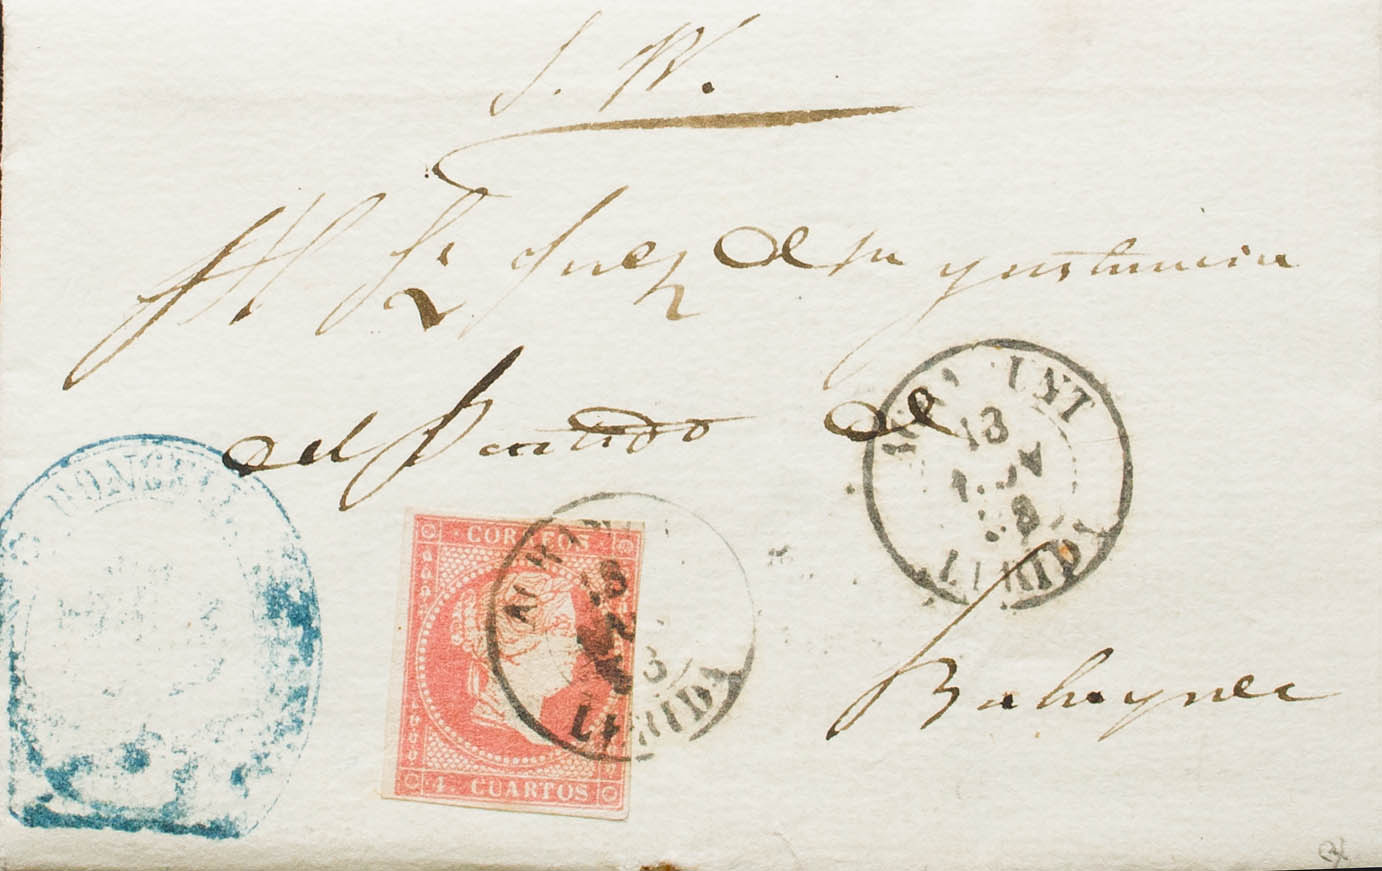 S. N.
Al Sr Juez de 1a ynstancia
del Partido de
Balaguer
CORREOS
4 CUARTOS
13
LERIDA
18
LERIDA